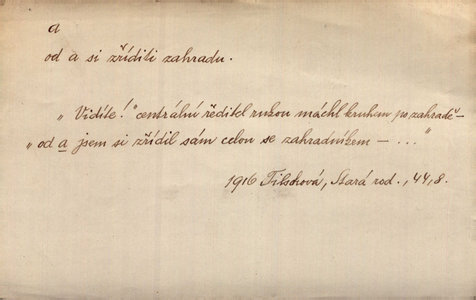 a
od a si zříditi zahradu.
„Vidíte!" centrální ředitel rukou máchl kruhem po zahradě –
„od a jsem si zřídil sám celou se zahradníkem – ..."
1916 Tilschová, Stará rod., 44, 8.